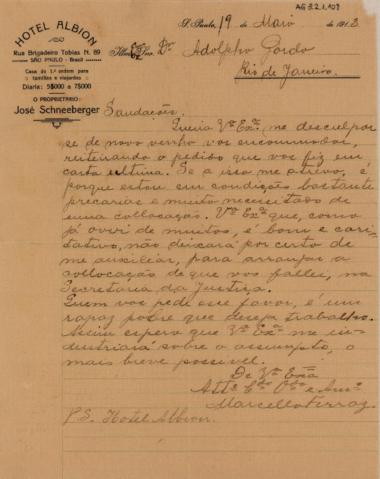 AG 3.2.1.109
HOTEL ALBION
Rua Brigadeiro Tobias N. 89
SÃO PAULO - Brasil
Casa de 1.ª ordem para
familias e viajantes
Diaria: 5$000 e 7$000
O PROPRIETARIO:
José Schneeberger
S. Paulo, 19 de Maio de 1913
Illmo Exmo Snr. Dr. Adolpho Gordo
Rio de Janeiro.
Saudações.
Queira Vª Exª, me desculpar
se de novo venho vos encommodar,
reiterando o pedido que vos fiz em
carta ultima. Se a isso me atrevo, é
porque estou em condições bastante
precarias e muito necessitado de
uma collocação. Vª Exª que, como
já ouvi de muitos, é bom e cari-
tativo, não deixará por certo de
me auxiliar, para arranjar a
collocação de que vos fallei, na
Secretaria da Justiça.
Quem vos pede esse favor, é um
rapaz pobre que deseja trabalho.
Assim espero que Vª Exª me in-
dustriará sobre o assumpto, o
mais breve possivel.
De Vª Exciã
Attº e
Marcello Ferraz
P.S. Hotel Albion.